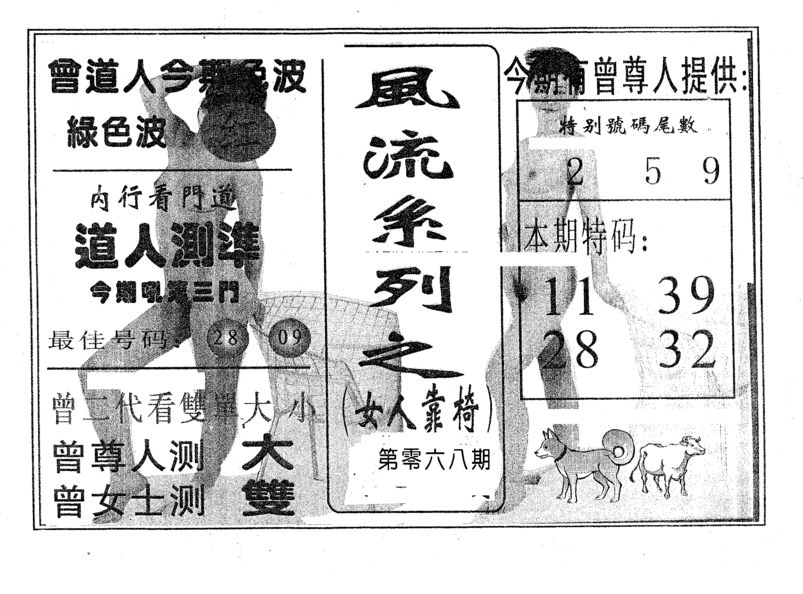 曾道人今期色波
綠色波 红
内行看門道
道人測準
今期吼第三門
最佳号码: 28 09
曾二代看雙單大小
曾尊人测 大
曾女士测 雙
風流系列之
(女人靠椅)
第零六八期
今期有曾尊人提供:
特别號碼尾數
2 5 9
本期特码:
11 39
28 32